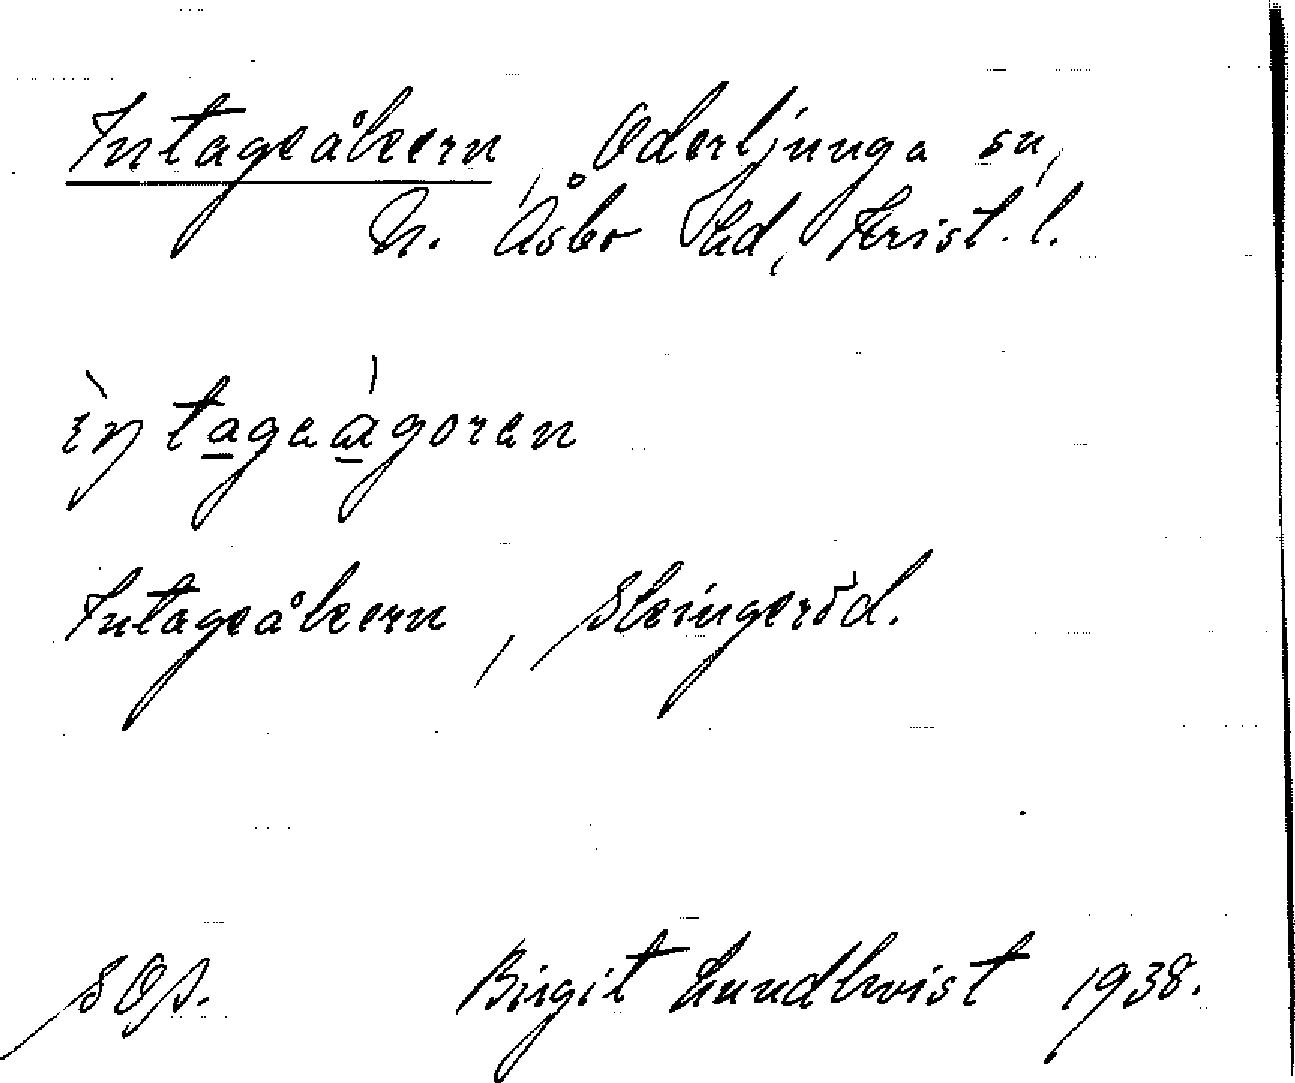 Intageåkern, Oderljunga sn,
N. Åsbo hd, Krist. l.
ìntagaágoren
Intageåkern, Skingeröd.
s Os.
Birgit Lundkvist 1938.